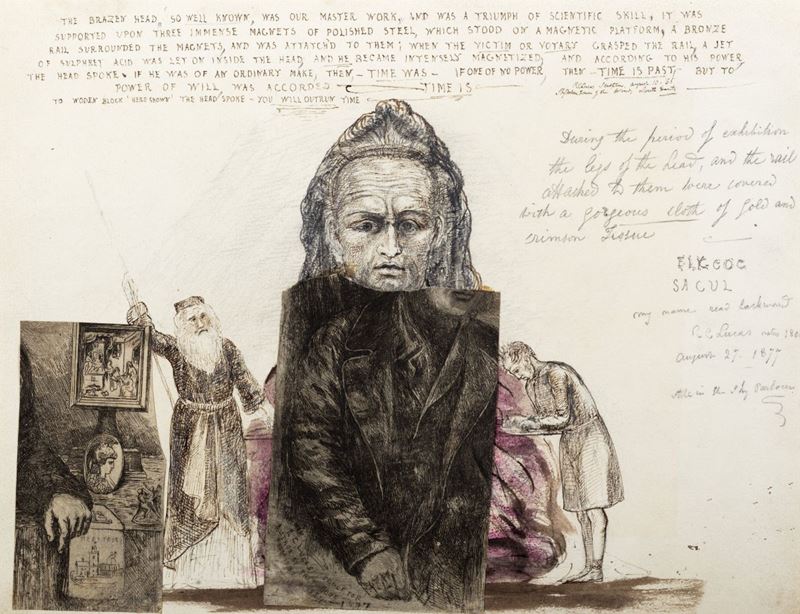 THE BRAZEN HEAD, SO WELL KNOWN, WAS OUR MASTER WORK, AND WAS A TRIUMPH OF SCIENTIFIC SKILL, IT WAS
SUPPORTED UPON THREE IMMENSE MAGNETS OF POLISHED STEEL, WHICH STOOD ON A MAGNETIC PLATFORM, A BRONZE
RAIL SURROUNDED THE MAGNETS, AND WAS ATTATCH'D TO THEM; WHEN THE VICTIM OR VOTARY GRASPED THE RAIL, A JET
OF SULPHRET ACID WAS LET ON INSIDE THE HEAD AND HE BECAME INTENSELY MAGNETIZED, AND ACCORDING TO HIS POWER
THE HEAD SPOKE. IF HE WAS OF AN ORDINARY MAKE, THEN - TIME WAS - IF ONE OF NO POWER, THEN - TIME IS PAST, BUT TO
POWER OF WILL, WAS ACCORDED TIME IS
TO WODEN BLOCK 'HEAD THE HEAD SPOKE - YOU WILL OUTRUN TIME
During the period of exhibition
the legs of the head, and the rail
attached to them were covered
with a gorgeous cloth of gold and
crimson Tissue
SACUL
my name read backward
R C Lucas
August 27 - 1877
in the
1877